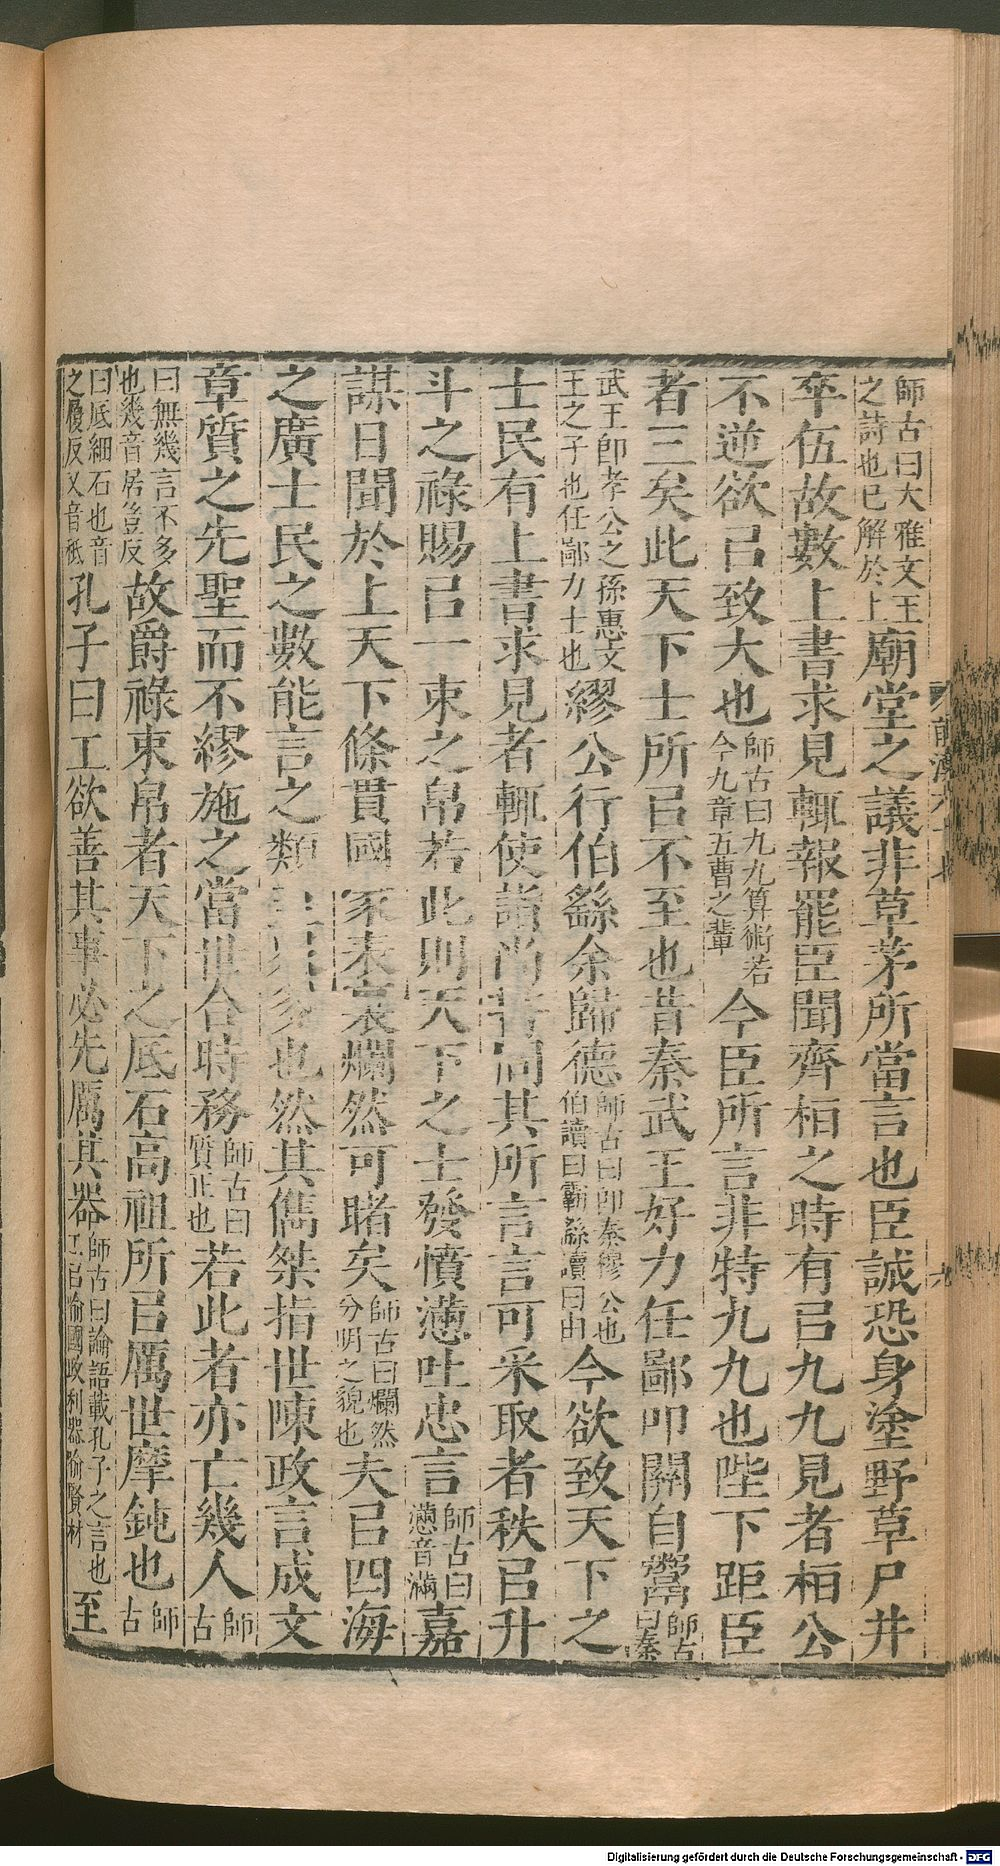 師古曰大雅文王之詩也已解於上廟堂之議非草茅所當言也臣誠恐身塗野草尸并
卒伍故數上書求見輒報罷臣聞齊桓之時有㠯九九見者桓公
不逆欲㠯致大也師古曰九九算術若今九章五曹之輩今臣所言非特九九也陛下距臣
者三矣此天下士所㠯不至也昔秦武王好力任鄙叩關自鬻師古曰秦
武王即孝公之孫惠文王之子也任鄙力士也繆公行伯繇余歸德師古曰即秦穆公也伯讀曰霸繇讀曰由今欲致天下之
士民有上書求見者輒使詣尚書問其所言言可采取者秩㠯升
斗之祿賜㠯一束之帛若此則天下之士發憤懣吐忠言師古曰懣音滿嘉
謀日聞於上天下條貫國家表裏爛然可睹矣師古曰爛然分明之貌也夫㠯四海
之廣士民之數能言之類至眾多也然其儁桀指世陳政言成文
章質之先聖而不繆施之當世合時務師古曰質正也若此者亦亡幾人師古
曰無幾言不多也幾音居豈反故爵祿束帛者天下之厎石高祖所㠯厲世摩鈍也師古
曰厎細石也音之履反又音祗孔子曰工欲善其事必先厲其器師古曰論語載孔子之言也工㠯喻國政利器喻賢材至
前漢六十七
九
Digitalisierung gefördert durch die Deutsche Forschungsgemeinschaft - DFG